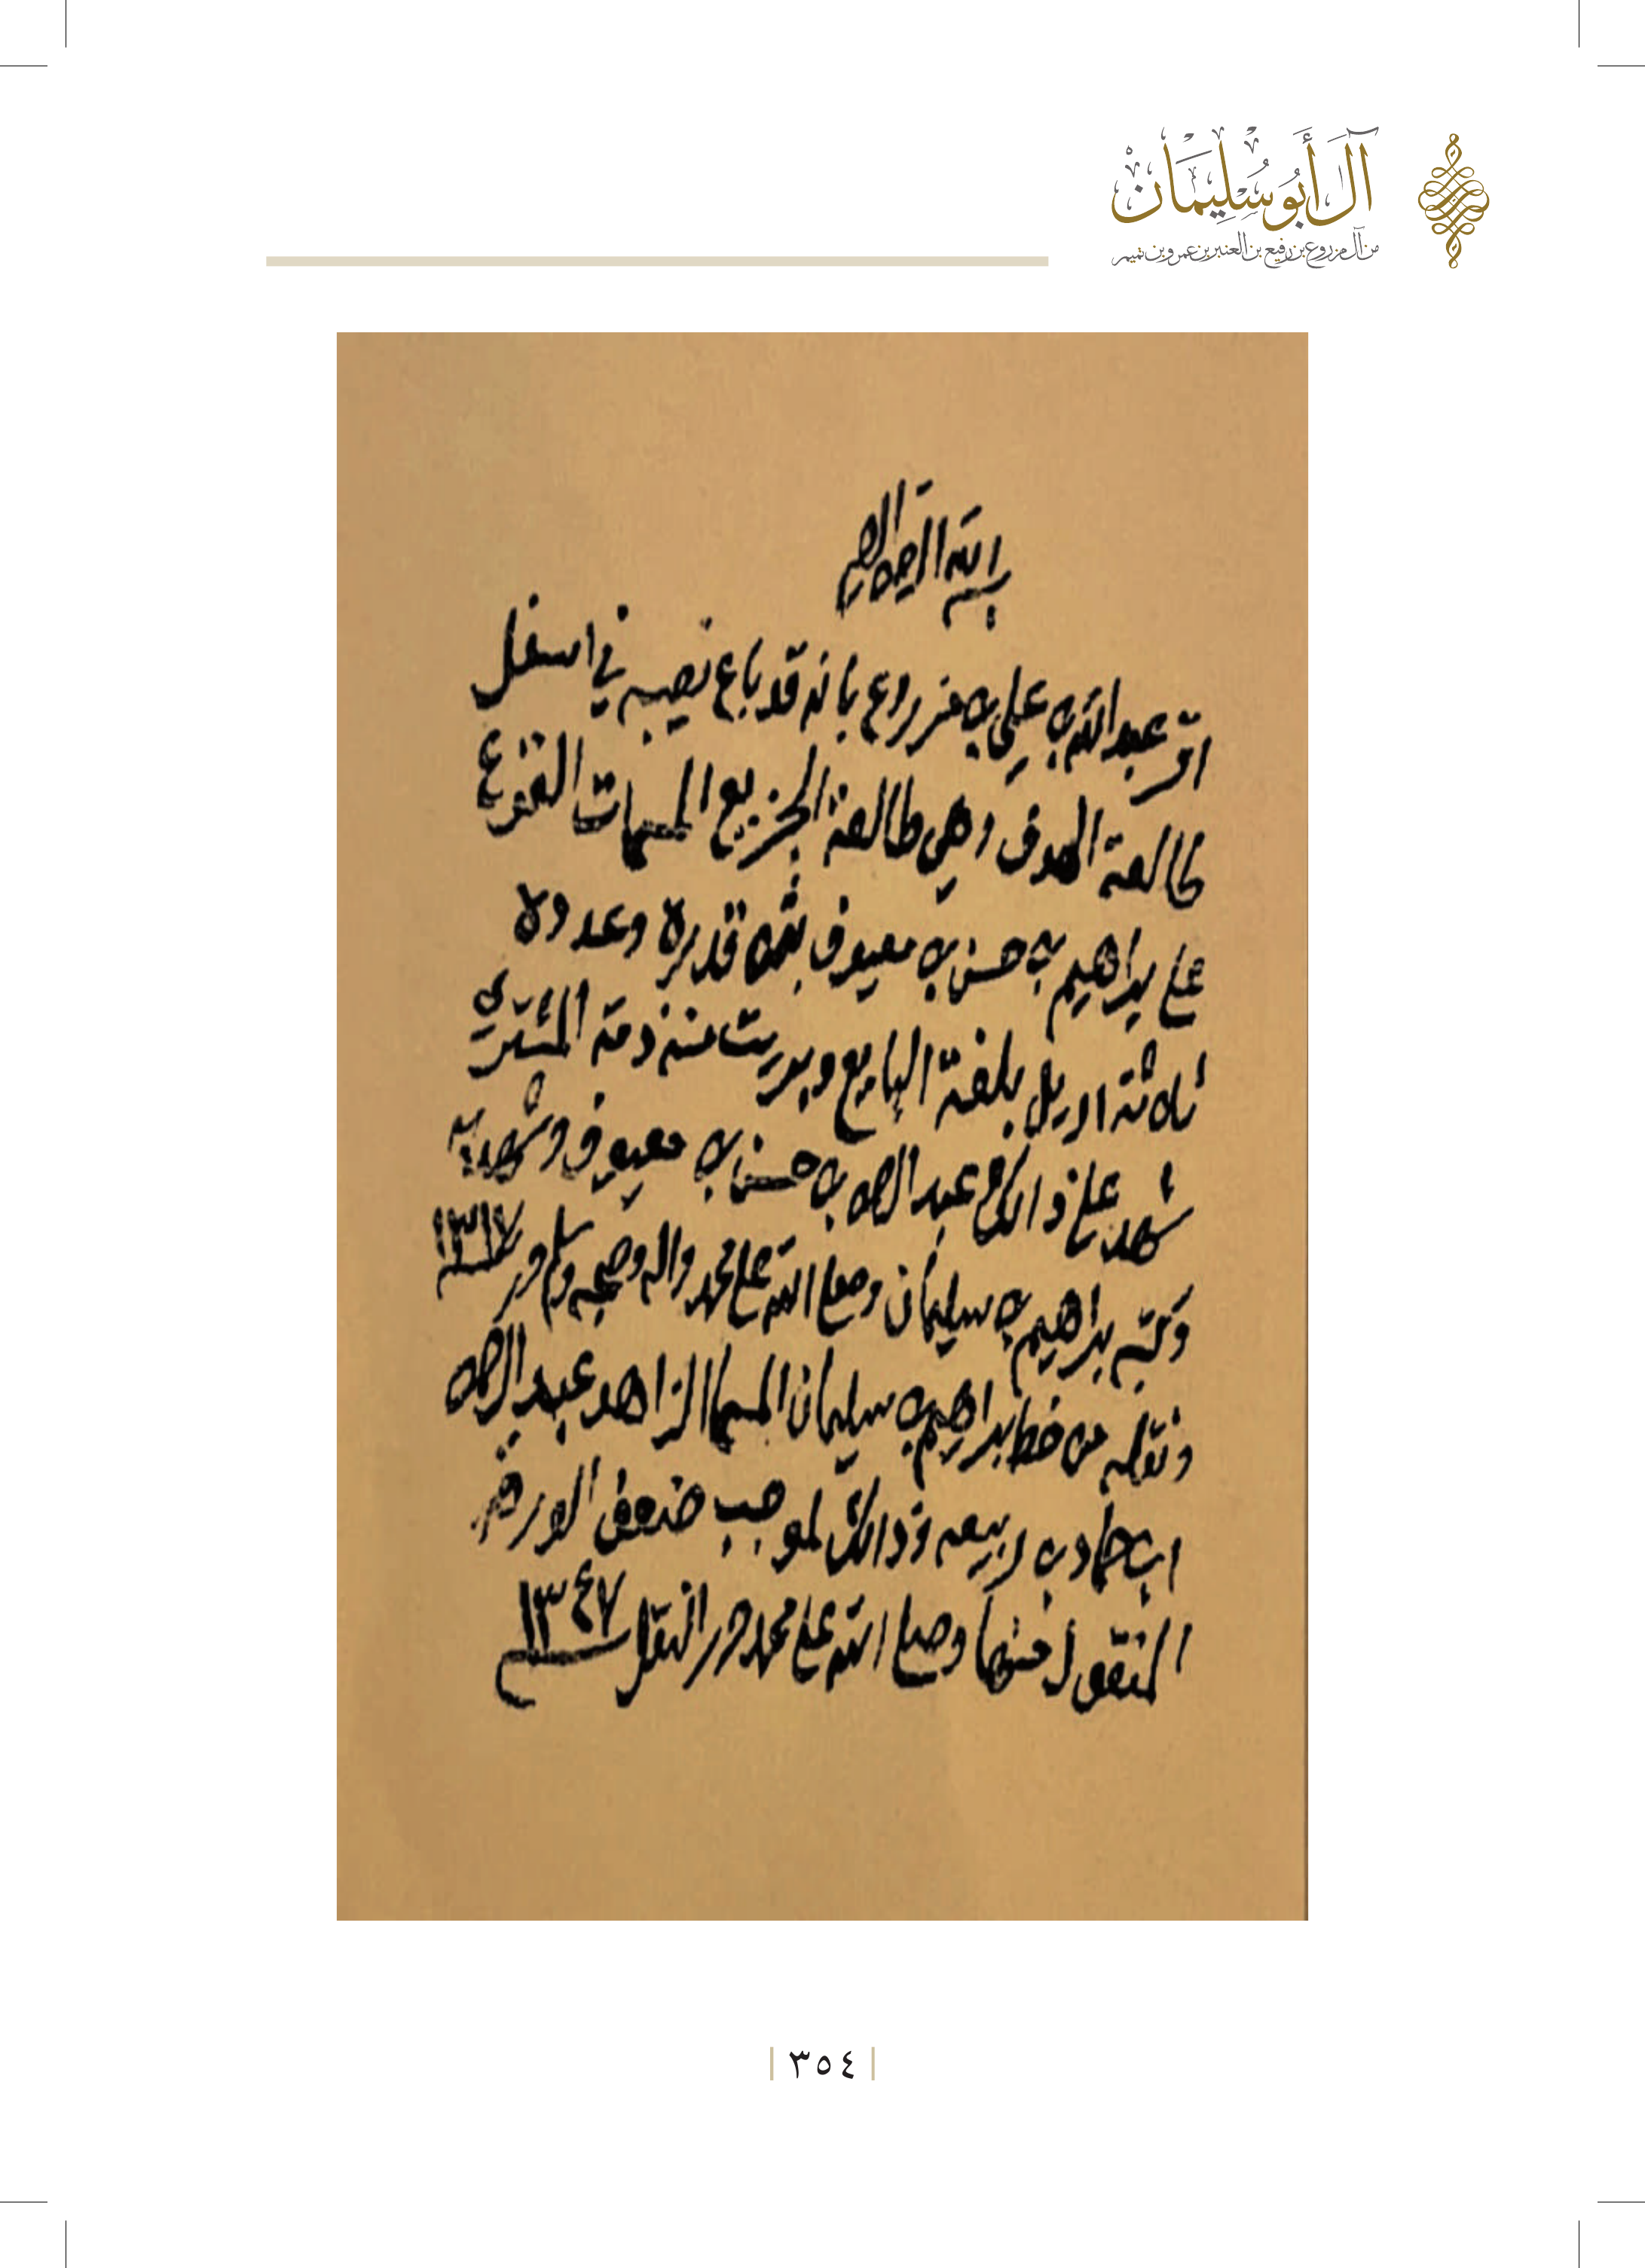 آل أبو سليمان
من آل مزروع بن رفيع بن العنبر بن عمرو بن تميم
بسم الله الرحمن الرحيم
اقر عبدالله بن علي بن مزروع بانه قد باع نصيبه في اسفل
طالعة الهدف وهي طالعة المسمات
على براهيم بن حسن بن معيوف بثمن قدره وعدده
ثلاثة اريل بلغة البايع وبريت منه ذمة المشتري
شهد على ذالك عبدالرحمن بن حسن بن معيوف وشهد به
وكتبه براهيم بن سليمان وصلى الله على محمد واله وصحبه وسلم حرر ١٣١٧
ونقله من خط براهيم بن سليمان المسما الزاهد عبدالرحمن
ابن حماد بن ربيعه وذالك لموجب ضعف الورقة
المنقول منها وصلى الله على محمد حرر النقل ١٣٤٧
٣٥٤